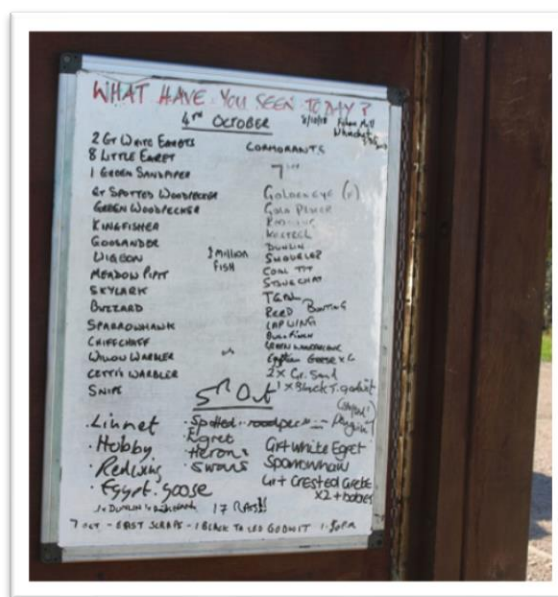 WHAT HAVE YOU SEEN TODAY?
4TH OCTOBER
2 GT WHITE EGRETS
8 LITTLE EGRET
1 GREEN SANDPIPER
GT SPOTTED WOODPECKER
GREEN WOODPECKER
KINGFISHER
GOOSANDER
WIGEON
MEADOW PIPIT
SKYLARK
BUZZARD
SPARROWHAWK
CHIFFCHAFF
WILLOW WARBLER
CETTI'S WARBLER
SNIPE
MILLION
FISH
CORMORANTS
GOLDENEYE
GOLD PLOVER
KESTREL
DUNLIN
SHOVELER
COAL TIT
STONECHAT
TEAL
REED BUNTING
LAPWING
BULLFINCH
GREEN
Egyptian GEESE
2 X Gr. Sand
1 X Black T. godwit
5TH Oct
· Linnet
· Hobby
· Redwing
· Egypt. goose
· Spotted
· Egret
· Herons
· Swans
Penguin
Grt White Egret
Sparrowhawk
Grt Crested Grebe
X2 + babies
17 RATS
7 OCT - EAST SCRAPE - 1 BLACK TAILED GODWIT